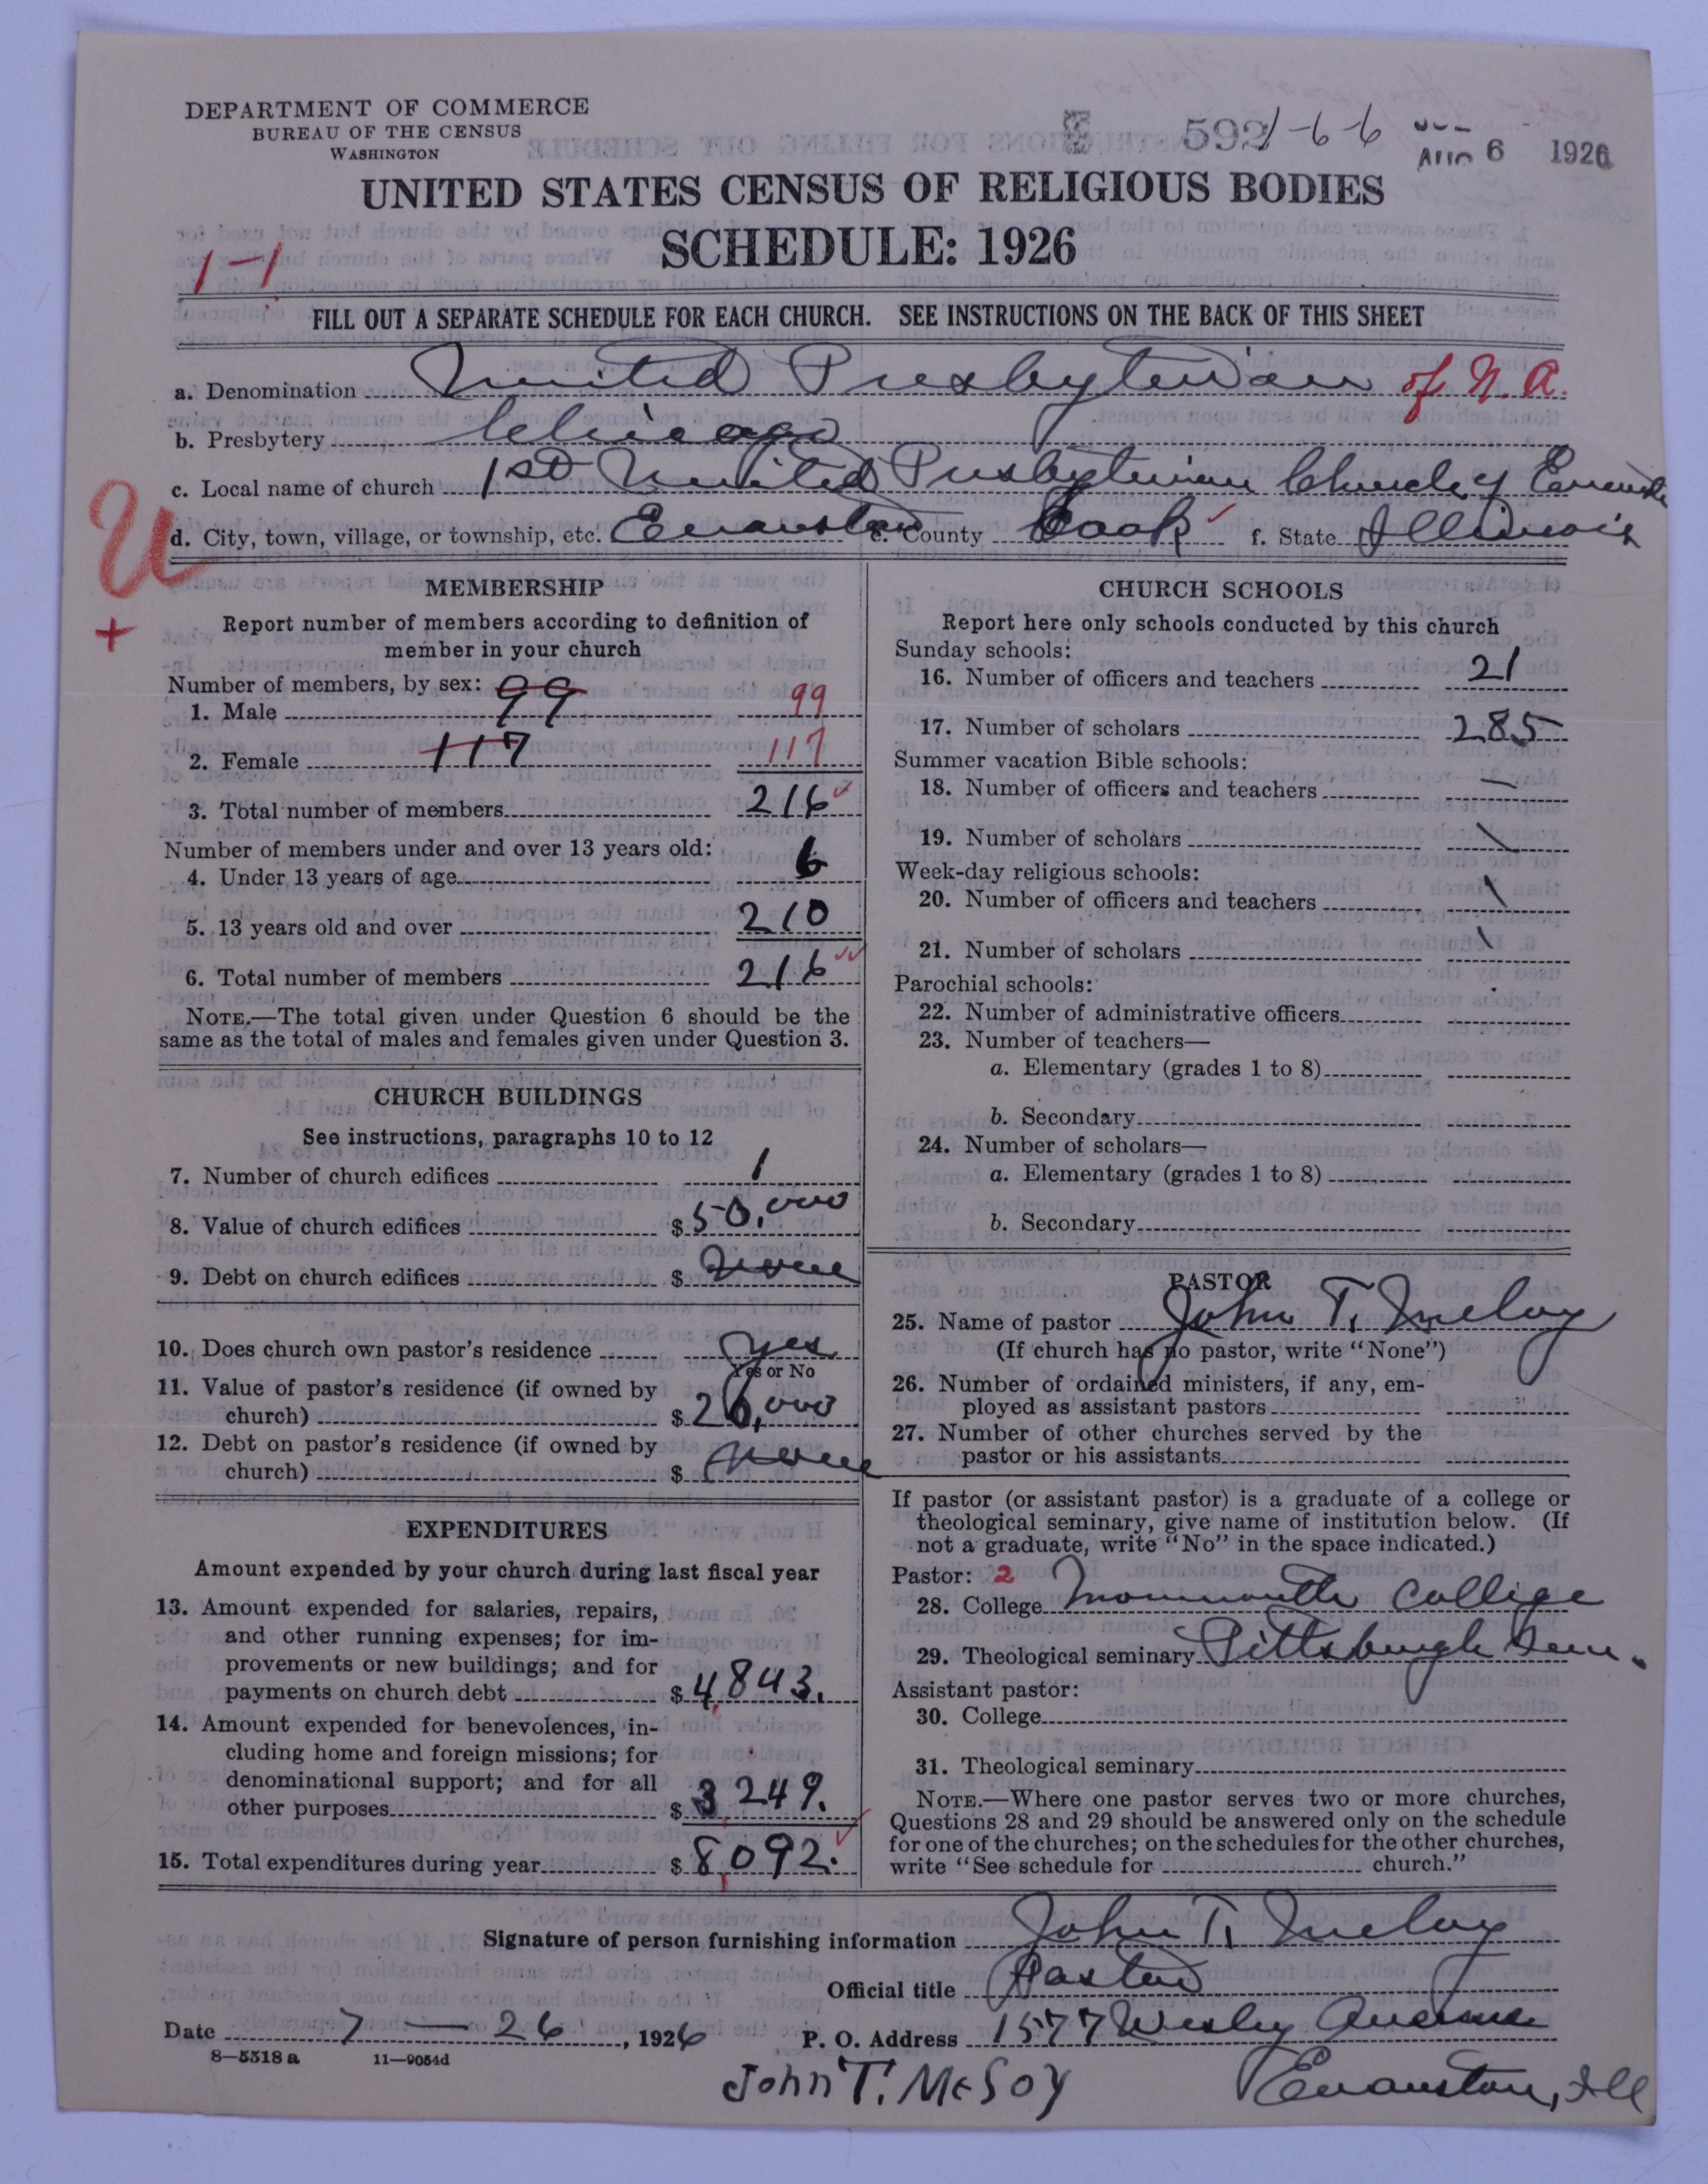 DEPARTMENT OF COMMERCE
BUREAU OF THE CENSUS
WASHINGTON
592 1-6-6
AUG 6 1926
UNITED STATES CENSUS OF RELIGIOUS BODIES
SCHEDULE: 1926
1-1
FILL OUT A SEPARATE SCHEDULE FOR EACH CHURCH. SEE INSTRUCTIONS ON THE BACK OF THIS SHEET
a. Denomination United Presbyterian of N. A.
b. Presbytery Chicago
c. Local name of church 1st United Presbyterian Church of Evanston
U
d. City, town, village, or township, etc. Evanston e. County Cook f. State Illinois
+
MEMBERSHIP
Report number of members according to definition of
member in your church
Number of members, by sex:
1. Male 99 99
2. Female 117 117
3. Total number of members 216
Number of members under and over 13 years old:
4. Under 13 years of age 6
5. 13 years old and over 210
6. Total number of members 216
NOTE.—The total given under Question 6 should be the
same as the total of males and females given under Question 3.
CHURCH BUILDINGS
See instructions, paragraphs 10 to 12
7. Number of church edifices 1
8. Value of church edifices $ 50,000
9. Debt on church edifices $ None
10. Does church own pastor's residence Yes
Yes or No
11. Value of pastor's residence (if owned by
church) $ 26,000
12. Debt on pastor's residence (if owned by
church) $ None
EXPENDITURES
Amount expended by your church during last fiscal year
13. Amount expended for salaries, repairs,
and other running expenses; for im-
provements or new buildings; and for
payments on church debt $ 4,843.
14. Amount expended for benevolences, in-
cluding home and foreign missions; for
denominational support; and for all
other purposes $ 3,249.
15. Total expenditures during year $ 8,092.
CHURCH SCHOOLS
Report here only schools conducted by this church
Sunday schools:
16. Number of officers and teachers 21
17. Number of scholars 285
Summer vacation Bible schools:
18. Number of officers and teachers —
19. Number of scholars \
Week-day religious schools:
20. Number of officers and teachers \
21. Number of scholars \
Parochial schools:
22. Number of administrative officers
23. Number of teachers—
a. Elementary (grades 1 to 8)
b. Secondary
24. Number of scholars—
a. Elementary (grades 1 to 8)
b. Secondary
PASTOR
25. Name of pastor John T. McCloy
(If church has no pastor, write "None")
26. Number of ordained ministers, if any, em-
ployed as assistant pastors
27. Number of other churches served by the
pastor or his assistants
If pastor (or assistant pastor) is a graduate of a college or
theological seminary, give name of institution below. (If
not a graduate, write "No" in the space indicated.)
Pastor: 2
28. College Monmouth College
29. Theological seminary Pittsburgh Sem.
Assistant pastor:
30. College
31. Theological seminary
NOTE.—Where one pastor serves two or more churches,
Questions 28 and 29 should be answered only on the schedule
for one of the churches; on the schedules for the other churches,
write "See schedule for church."
Signature of person furnishing information John T. McCloy
Official title Pastor
Date 7 — 26, 1926 P. O. Address 1577 Wesley Avenue
8—5318 a 11—9054d
John T. McSoy Evanston, Ill